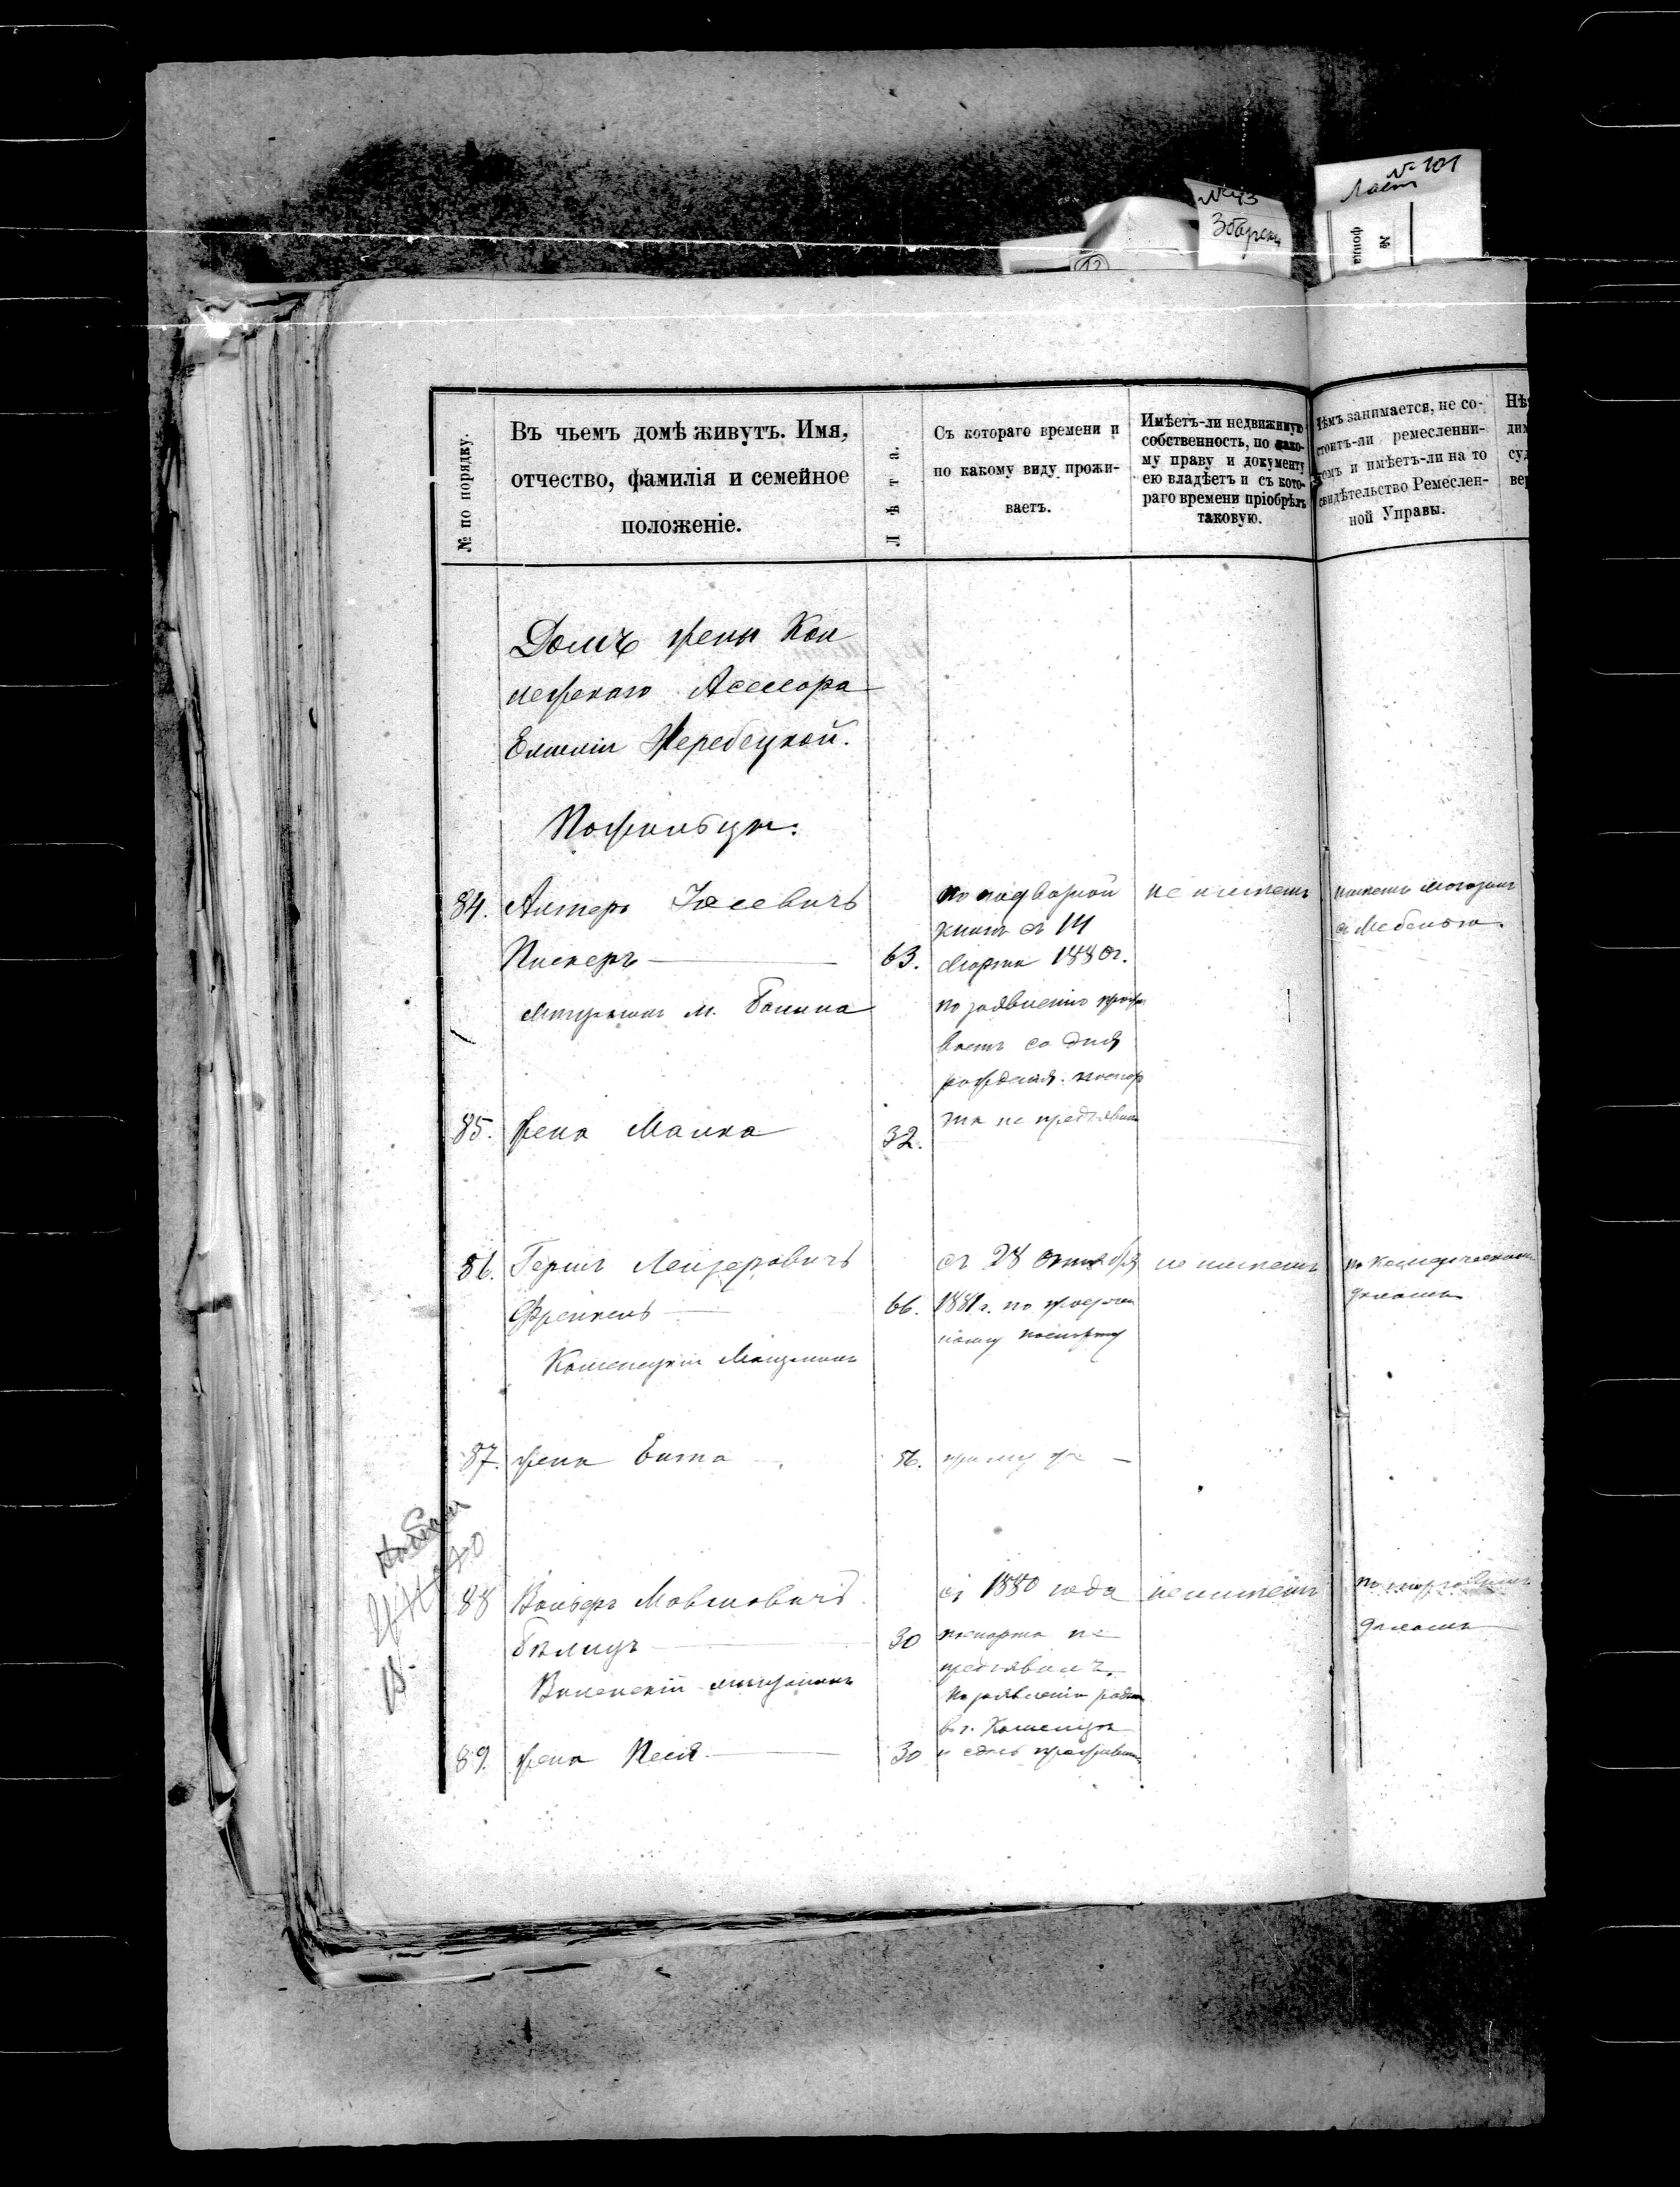 № 101
Ласт
№ 43
Збарски
№
фонда
12
№ по порядку.
Въ чьемъ домѣ живутъ. Имя,
отчество, фамилія и семейное
положеніе.
Лѣта.
Съ котораго времени и
по какому виду прожи-
ваетъ.
Имѣетъ-ли недвижимую
собственность, по како-
му праву и документу
ею владѣетъ и съ кото-
раго времени пріобрѣлъ
таковую.
Чѣмъ занимается, не со-
стоитъ-ли ремесленни-
комъ и имѣетъ-ли на то
свидѣтельство Ремеслен-
ной Управы.
Домъ жены Кол
лежскаго Асессора
Жеребецкой.
Пожильцы:
84. Алтеръ Іосевичъ
Пискеръ 63.
мѣщанинъ м.
по подворной
книгѣ съ 14
Марта 1880г.
по заявленію прожи
ваетъ со дня
рожденія. паспор
та не предъявилъ
не имѣетъ
имѣетъ магазинъ
съ Мебелью.
85. жена Малка 32.
86. Гершъ Лейзеровичъ
Френкель 66.
Каменецкій Мѣщанинъ
съ 28 Октября
1881 г. по
паспорту
не имѣетъ
по Комерческимъ
дѣламъ
87. жена 56. при мужѣ
88 Вольфъ Мовшовичъ
Бѣлицъ 30
Виленскій мѣщанинъ
съ 1880 года
паспорта не
предъявилъ.
По заявленію
въ г. Каменцѣ
и здѣсь
не имѣетъ
по торговымъ
дѣламъ
89. жена Песя 30